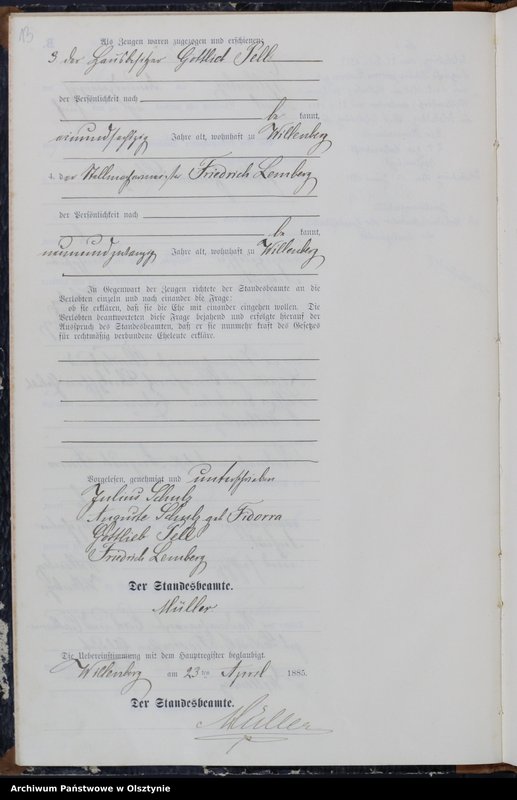 13
Als Zeugen waren zugezogen und erschienen:
3 der Hausbesitzer Gottlieb Sell
der Persönlichkeit nach
be kannt,
einundsechzig Jahre alt, wohnhaft zu Willenberg
4. der Stellmachermeister Friedrich Lemberg
der Persönlichkeit nach
be kannt,
neunundzwanzig Jahre alt, wohnhaft zu Willenberg
In Gegenwart der Zeugen richtete der Standesbeamte an die
Verlobten einzeln und nach einander die Frage:
ob sie erklären, daß sie die Ehe mit einander eingehen wollen. Die
Verlobten beantworteten diese Frage bejahend und erfolgte hierauf der
Ausspruch des Standesbeamten, daß er sie nunmehr kraft des Gesetzes
für rechtmäßig verbundene Eheleute erkläre.
Vorgelesen, genehmigt und unterschrieben
Julius Schulz
Auguste Schulz geb Fidorra
Gottlieb Sell
Friedrich Lemberg
Der Standesbeamte.
Müller
Die Uebereinstimmung mit dem Hauptregister beglaubigt.
Willenberg am 23 ten April 1885.
Der Standesbeamte.
Müller
Archiwum Państwowe w Olsztynie